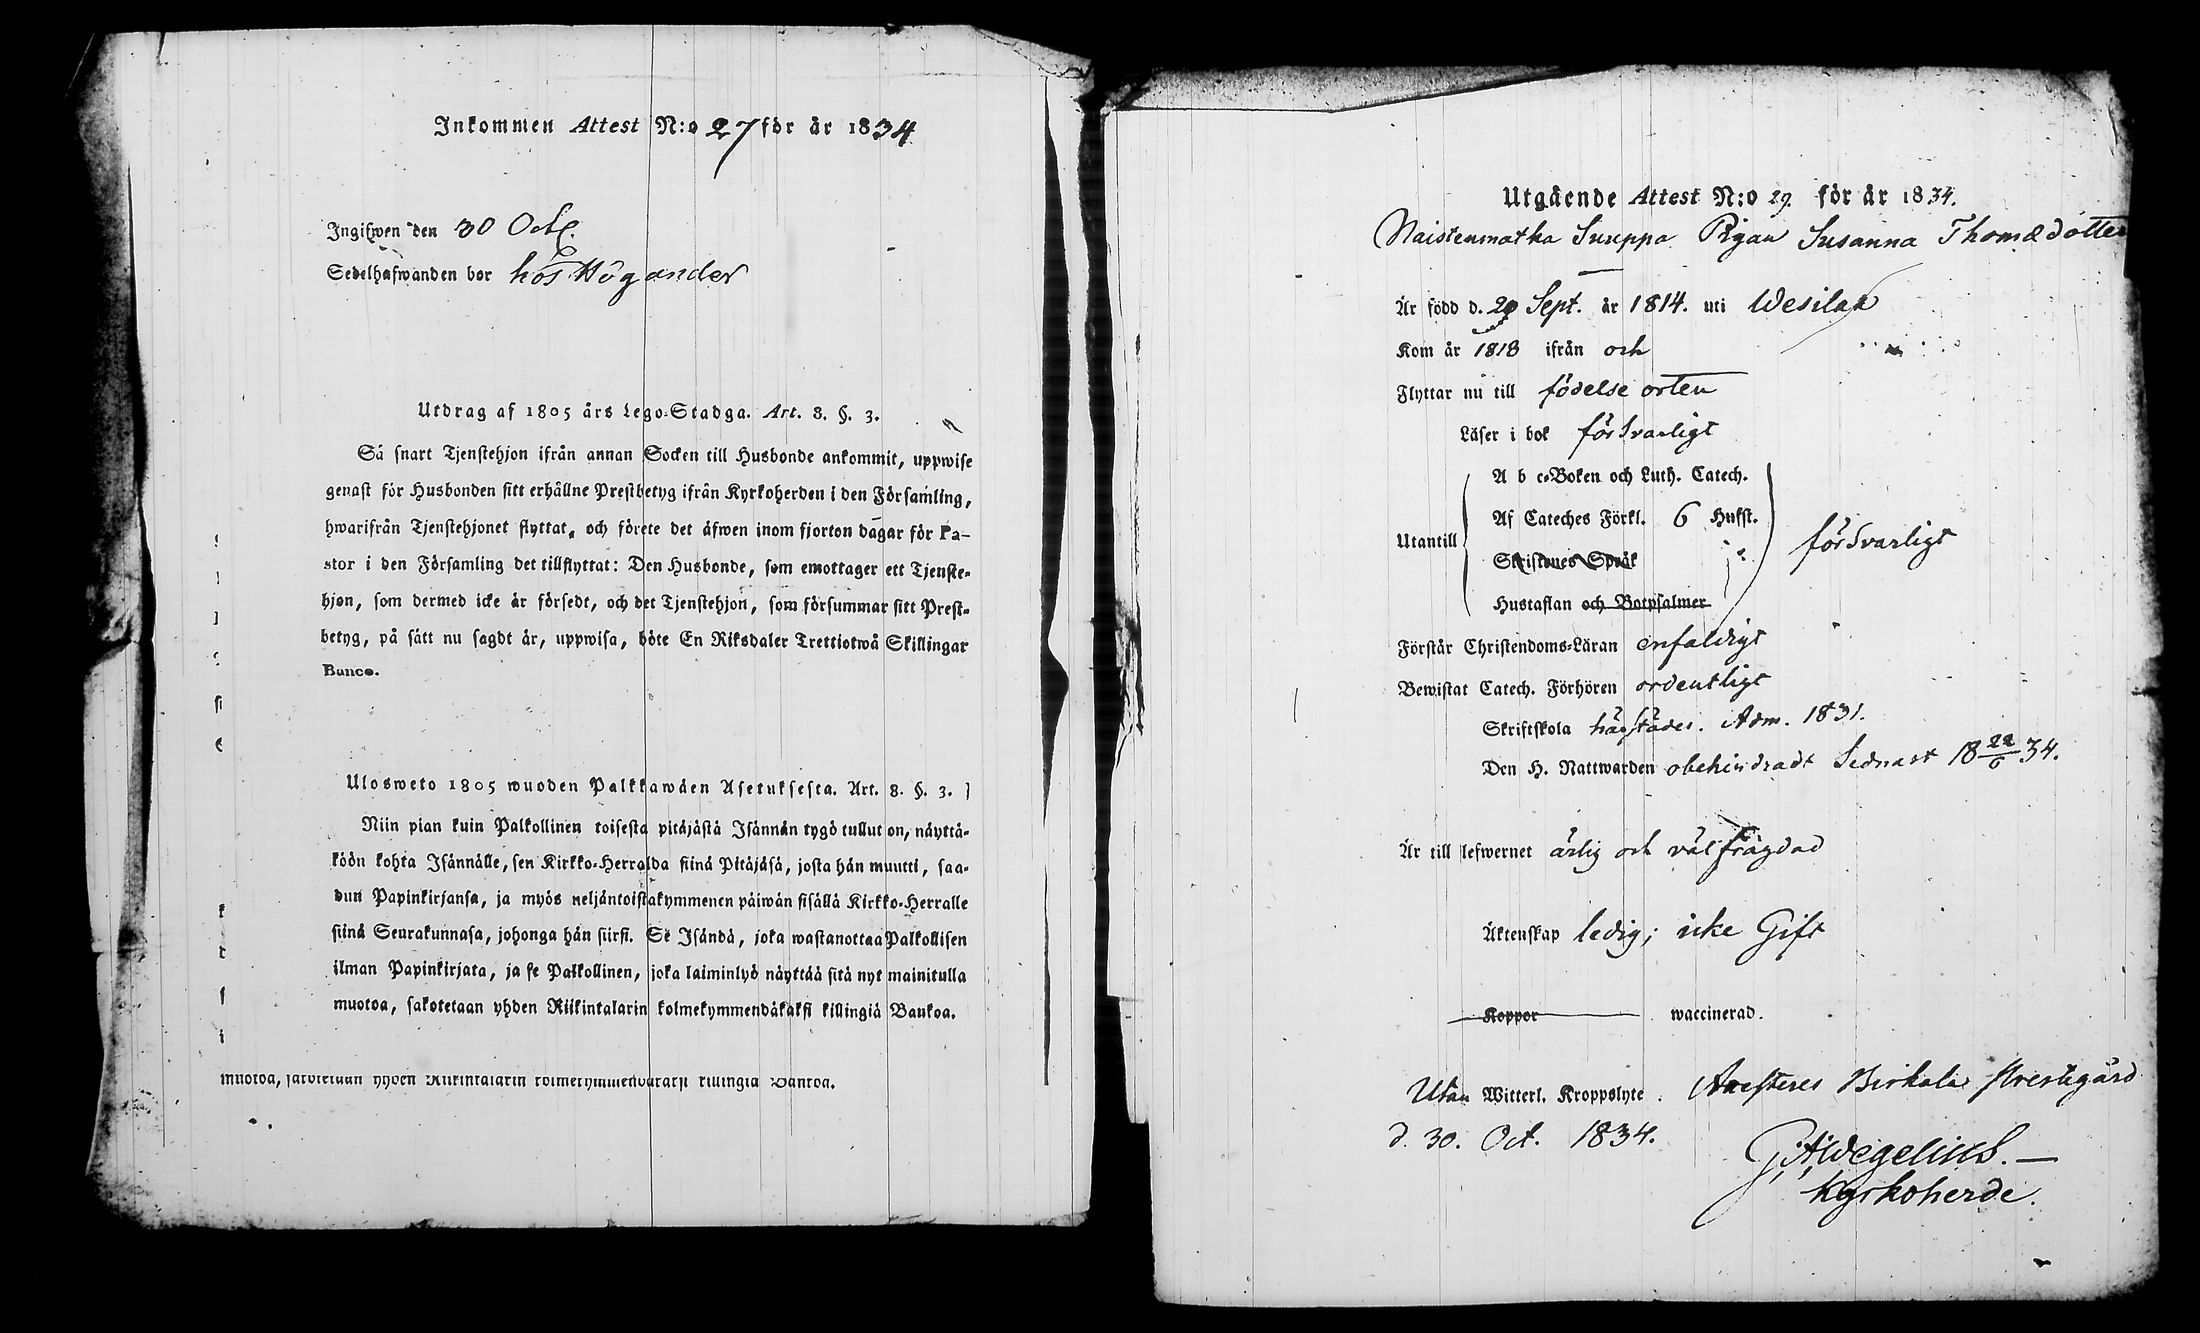 Inkommen Attest N:o 27 för år 1834
Ingifwen den 30 Oct.
Sedelhafwanden bor hos Högander
Utdrag af 1805 års Lego-Stadga. Art. 8. §. 3.
Så snart Tjenstehjon ifrån annan Socken till Husbonde ankommit, uppwise
genast för Husbonden sitt erhållne Prestbetyg ifrån Kyrkoherden i den Församling,
hwarifrån Tjenstehjonet flyttat, och förete det äfwen inom fjorton dagar för Pa-
stor i den Församling det tillflyttat: Den Husbonde, som emottager ett Tjenste-
hjon, som dermed icke är försedt, och det Tjenstehjon, som försummar sitt Prest-
betyg, på sätt nu sagdt är, uppwisa, böte En Riksdaler Trettiotwå Skillingar
Banco.
Ulosweto 1805 wuoden Palkkawäen Asetuksesta. Art. 8. §. 3.
Niin pian kuin Palkollinen toisesta pitäjästä Isännän tygö tullut on, näyttä-
köön kohta Isännälle, sen Kirkko-Herralda siinä Pitäjäsä, josta hän muutti, saa-
dun Papinkirjansa, ja myös neljäntoistakymmenen päiwän sisällä Kirkko-Herralle
siinä Seurakunnasa, johonga hän siirsi. Se Isändä, joka wastanottaa Palkollisen
ilman Papinkirjata, ja se Palkollinen, joka laiminlyö näyttää sitä nyt mainitulla
muotoa, sakotetaan yhden Riikintalarin kolmekymmendäkaksi killingiä Bankoa.
muotoa, sakotetaan yhden Riikintalarin kolmekymmendäkaksi killingiä Bankoa.
Utgående Attest N:o 29. för år 1834.
Naistenmatka Simppa Pigan Susanna Thomædotter
Är född d. 29 Sept. år 1814. uti Wesilax
Kom år 1818 ifrån och
Flyttar nu till födelse orten
Läser i bok försvarligt
A b c-Boken och Luth. Catech.
Af Cateches Förkl. 6 Hufst.
Utantill försvarligt
Skriftenes Språk
Hustaflan och Botpsalmer
Förstår Christendoms-Läran enfaldigt
Bewistat Catech. Förhören ordentligt
Skriftskola härstädes. Adm. 1831.
Den H. Nattwarden obehindradt Sednast 18 22/6 34.
Är till lefwernet ärlig och välfrägdad
Äktenskap ledig; icke Gift
Koppor waccinerad.
Utan Witterl. Kroppslyte. Attesteras Birkala Prestegård
d. 30. Oct. 1834.
Kyrkoherde.